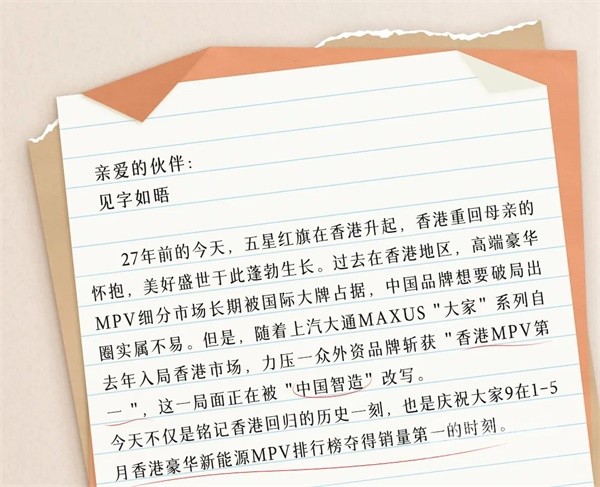 亲爱的伙伴：
见字如晤
27年前的今天，五星红旗在香港升起，香港重回母亲的
怀抱，美好盛世于此蓬勃生长。过去在香港地区，高端豪华
MPV细分市场长期被国际大牌占据，中国品牌想要破局出
圈实属不易。但是，随着上汽大通MAXUS "大家" 系列自
去年入局香港市场，力压一众外资品牌斩获 "香港MPV第
一 "，这一局面正在被 "中国智造" 改写。
今天不仅是铭记香港回归的历史一刻，也是庆祝大家9在1-5
月香港豪华新能源MPV排行榜夺得销量第一的时刻。